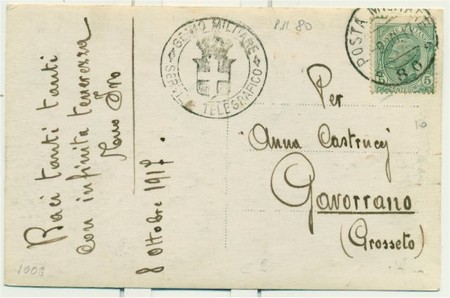 Baci tanti tanti
con infinita tenerezza
8 Ottobre 1917.
GENIO MILITARE
SERV. TELEGRAFICO
P.M. 80
POSTA MILITARE
80
5
Per
Anna Castrucci
Gavorrano
(Grosseto)
1003